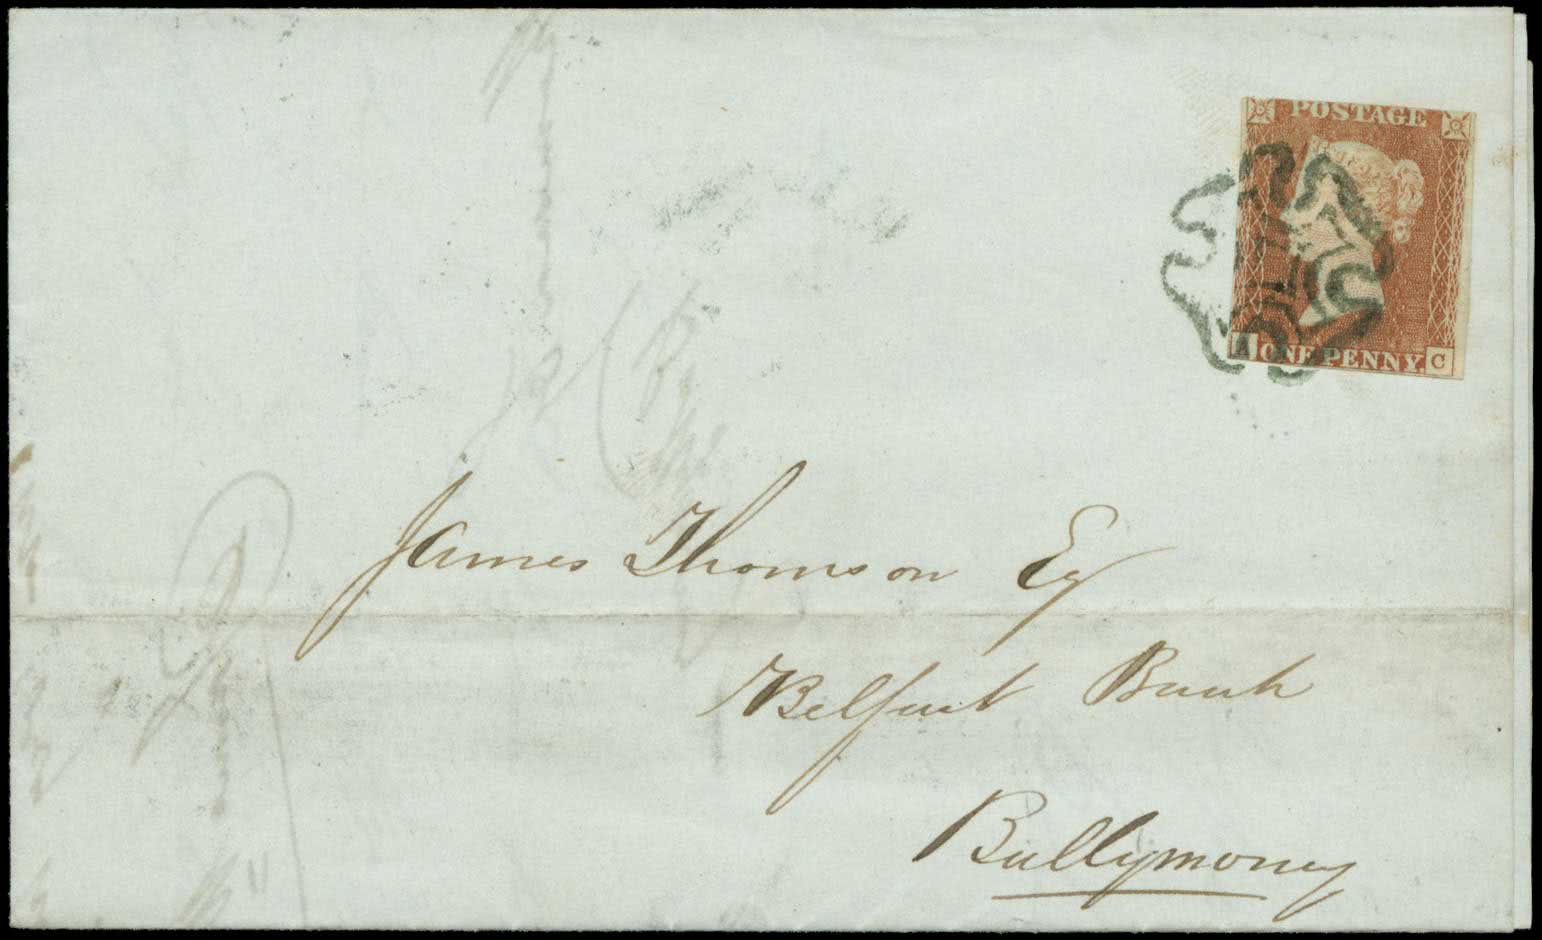 POSTAGE
ONE PENNY C
James Thomson Esq
Belfast Bank
Ballymoney